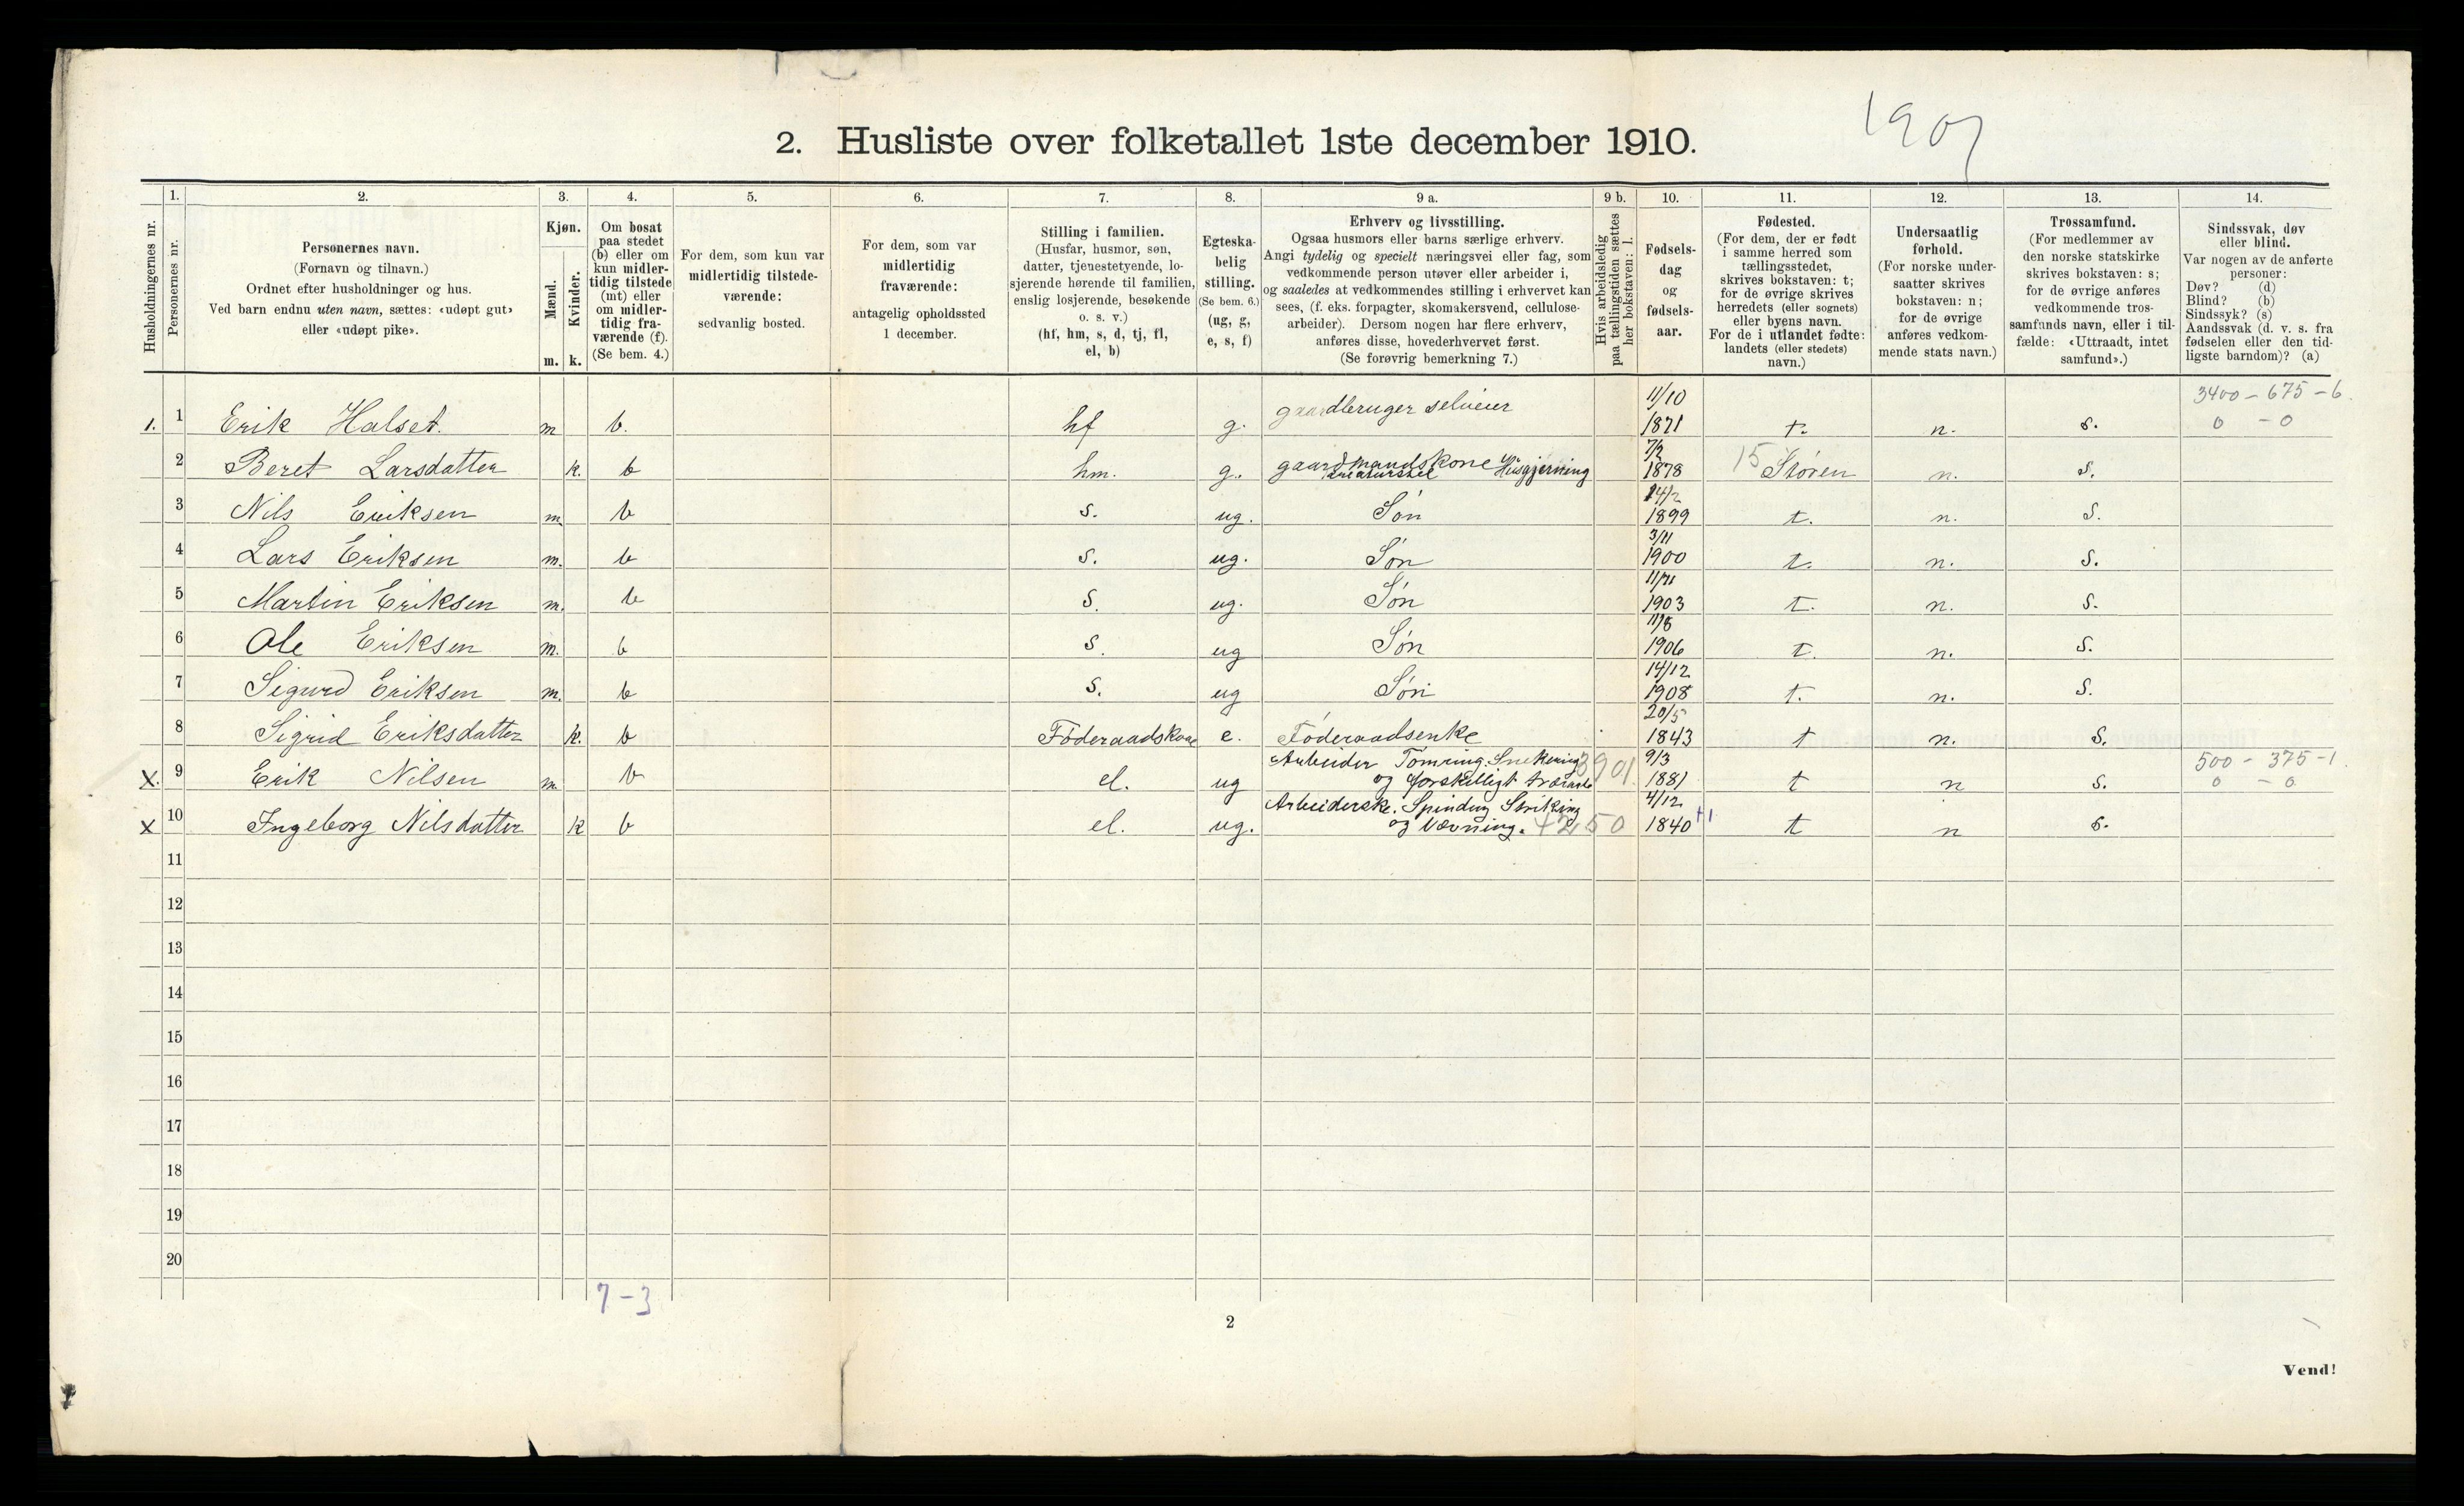 1907
2. Husliste over folketallet 1ste december 1910.
Husholdningernes nr.
1. Personernes nr.
2. Personernes navn.
(Fornavn og tilnavn.)
Ordnet efter husholdninger og hus.
Ved barn endnu uten navn, sættes: «udøpt gut»
eller «udøpt pike».
3. Kjøn.
Mænd. m.
Kvinder. k.
4. Om bosat
paa stedet
(b) eller om
kun midler-
tidig tilstede
(mt) eller
om midler-
tidig fra-
værende (f).
(Se bem. 4.)
5. For dem, som kun var
midlertidig tilstede-
værende:
sedvanlig bosted.
6. For dem, som var
midlertidig
fraværende:
antagelig opholdssted
1 december.
7. Stilling i familien.
(Husfar, husmor, søn,
datter, tjenestetyende, lo-
sjerende hørende til familien,
enslig losjerende, besøkende
o. s. v.)
(hf, hm, s, d, tj, fl,
el, b)
8. Egteska-
belig
stilling.
(Se bem. 6.)
(ug, g,
e, s, f)
9 a. Erhverv og livsstilling.
Ogsaa husmors eller barns særlige erhverv.
Angi tydelig og specielt næringsvei eller fag, som
vedkommende person utøver eller arbeider i,
og saaledes at vedkommendes stilling i erhvervet kan
sees, (f. eks. forpagter, skomakersvend, cellulose-
arbeider). Dersom nogen har flere erhverv,
anføres disse, hovederhvervet først.
(Se forøvrig bemerkning 7.)
9 b. Hvis arbeidsledig
paa tællingstiden sættes
her bokstaven: l.
10. Fødsels-
dag
og
fødsels-
aar.
11. Fødested.
(For dem, der er født
i samme herred som
tællingsstedet,
skrives bokstaven: t;
for de øvrige skrives
herredets (eller sognets)
eller byens navn.
For de i utlandet fødte:
landets (eller stedets)
navn.)
12. Undersaatlig
forhold.
(For norske under-
saatter skrives
bokstaven: n;
for de øvrige
anføres vedkom-
mende stats navn.)
13. Trossamfund.
(For medlemmer av
den norske statskirke
skrives bokstaven: s;
for de øvrige anføres
vedkommende tros-
samfunds navn, eller i til-
fælde: «Uttraadt, intet
samfund».)
14. Sindssvak, døv
eller blind.
Var nogen av de anførte
personer:
Døv? (d)
Blind? (b)
Sindssyk? (s)
Aandssvak (d. v. s. fra
fødselen eller den tid-
ligste barndom)? (a)
1. 1 Erik Halset. m b. hf g. gaardbruger selveier 11/10 1871 t. n. s. 3400 - 675 - 6 0 - 0
2 Beret Larsdatter k. b hm. g. gaardmandskone Husgjerning 7/2 1878 15 Støren n. s.
3 Nils Eriksen m. b s. ug. Søn 14/2 1899 t. n. s.
4 Lars Eriksen m. b s. ug. Søn 3/11 1900 t. n. s.
5 Martin Eriksen m. b s. ug. Søn 1903 t. n. s.
6 Ole Eriksen m. b s. ug Søn 1906 t. n. s.
7 Sigurd Eriksen m. b s. ug Søn 14/12 1908 t. n. s.
8 Sigrid Eriksdatter k. b Føderaadskone e. Føderaadsenke 20/5 1843 t n. s.
X. 9 Erik Nilsen m. b el. ug Arbeider Tømring. Snekering og forskelligt 3901 9/3 1881 t n s. 500 - 375 - 1. 0 - 0
X 10 Ingeborg Nilsdatter k b el. ug. Arbeiderske. Spinding Strikking og Vævning. 4250 4/12 1840 t n s.
11
12
13
14
15
16
17
18
19
20
7 - 3
2
Vend!